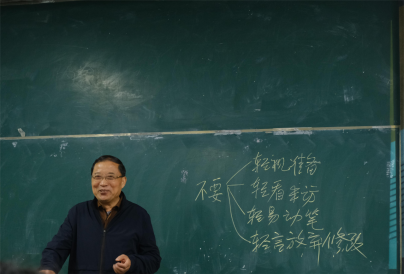 不要
轻视准备
轻看采访
轻易动笔
轻言放弃修改